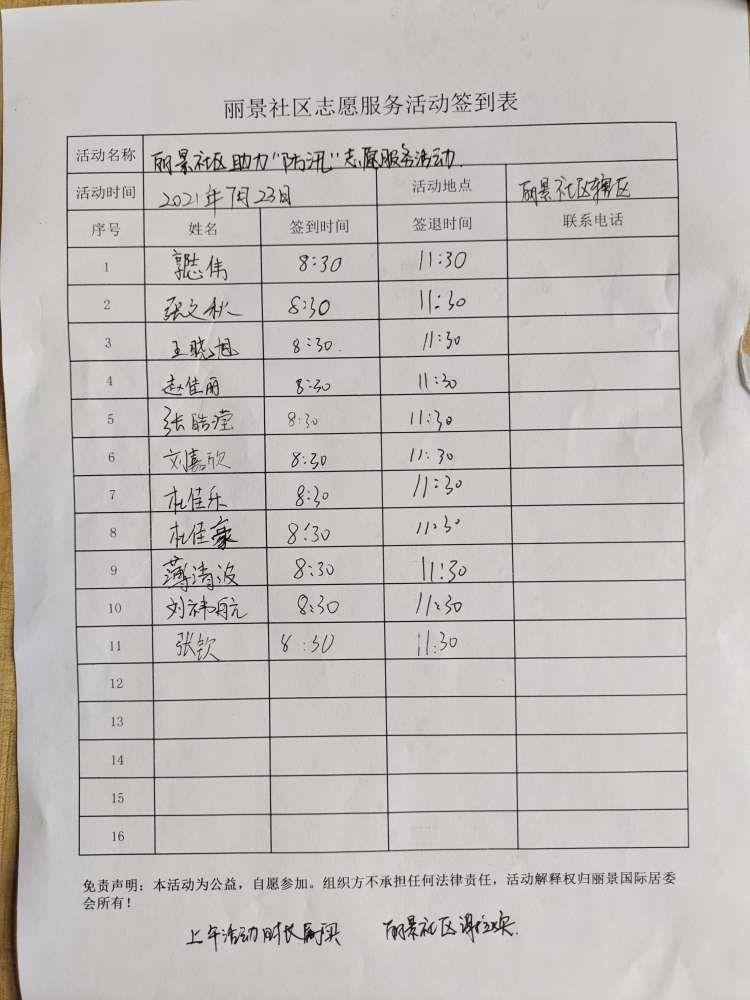 丽景社区志愿服务活动签到表
活动名称 丽景社区助力"防汛"志愿服务活动.
活动时间 2021年7月23日 活动地点 丽景社区辖区
序号 姓名 签到时间 签退时间 联系电话
1 郭志伟 8:30 11:30
2 张文秋 8:30 11:30
3 王晓旭 8:30. 11:30
4 赵佳丽 8:30 11:30
5 张皓滢 8:30 11:30
6 刘嘉欣 8:30 11:30
7 杜佳乐 8:30 11:30
8 杜佳豪 8:30 11:30
9 薄清波 8:30 11:30
10 刘祎航 8:30 11:30
11 张钦 8:30 11:30
12
13
14
15
16
免责声明:本活动为公益,自愿参加。组织方不承担任何法律责任,活动解释权归丽景国际居委
会所有!
上午活动时长属实 丽景社区